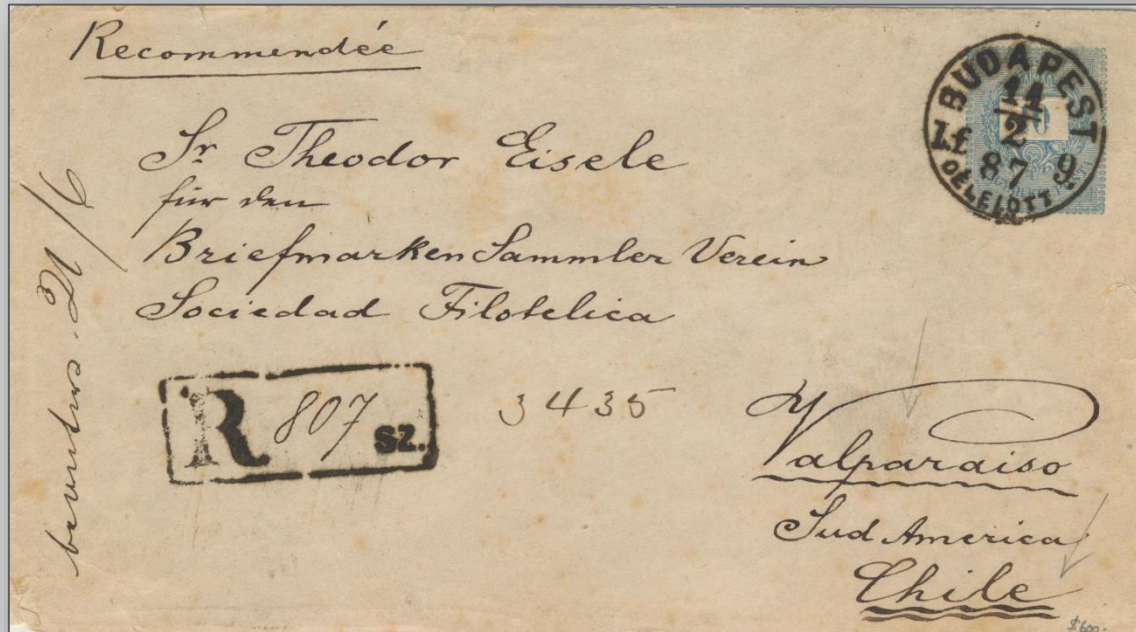 Recommendée
BUDAPEST
11
2
87 9
DÉLELŐTT
Sr Theodor Eisele
für den
Briefmarken Sammler Verein
Sociedad Filotelica
R 807 SZ.
3435
Valparaiso
Sud America
Chile
$600.-